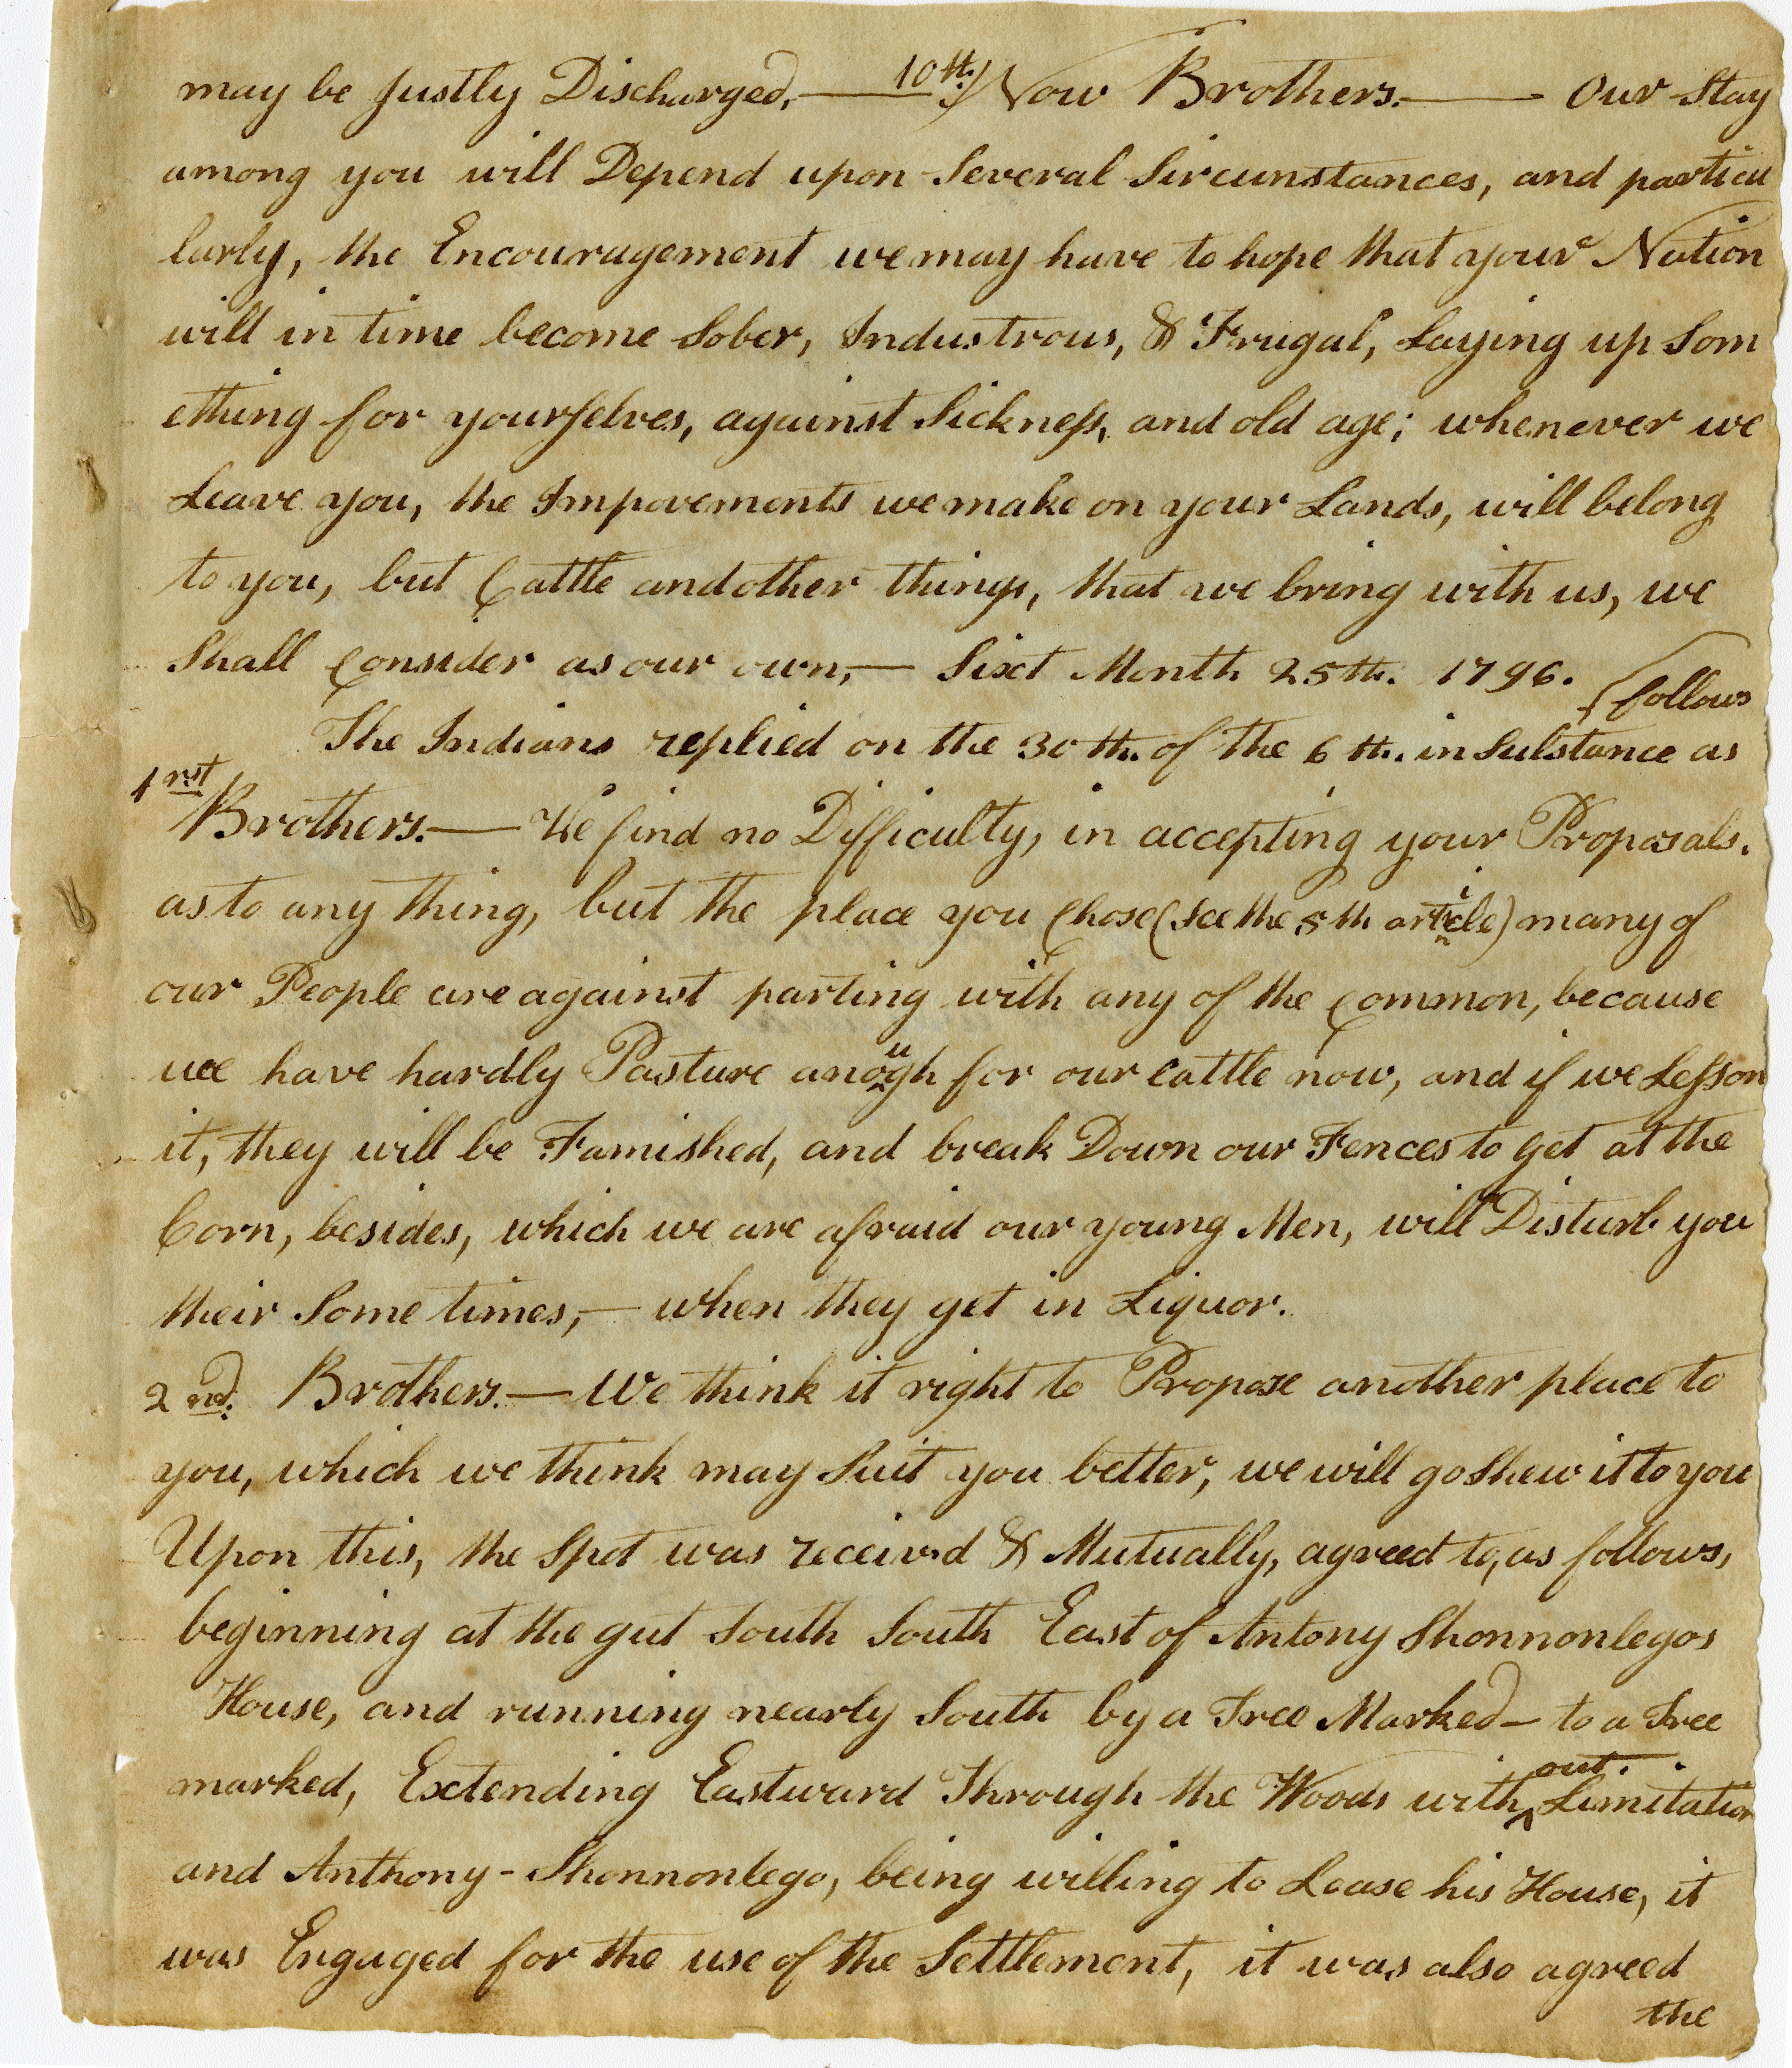 may be justly Discharged,— 10th) Now Brothers.— Our Stay
among you will Depend upon Several Sircunstances, and particu
larly, the Encouragement we may have to hope that your Nation
will in time become Sober, Industrous, & Frugal, Laying up Som
ething for yourselves, against Sickness, and old age; whenever we
Leave you, the Impovements we make on your Lands, will belong
to you, but Cattle and other things, that we bring with us, we
Shall Consider as our own,— Sixt Month 25th. 1796.
follows
The Indians replied on the 30th. of the 6th. in Substance as
1rst
Brothers.— We find no Difficulty, in accepting your Proposals.
as to any thing, but the place you Chose (See the 5th article) many of
our People are against parting with any of the Common, because
we have hardly Pasture anough for our Cattle now, and if we Lesson
it, they will be Famished, and break Down our Fences to get at the
Corn, besides, which we are afraid our young Men, will Disturb you
their Some times,— when they get in Liquor.
2nd. Brothers.— We think it right to Propose another place to
you, which we think may Suit you better, we will go Shew it to you
Upon this, the Spot was receivd & Mutually, agreed to, as follows,
beginning at the gut South South East of Antony Shonnonlegos
House, and running nearly South by a Tree Marked— to a Tree
marked, Extending Eastward Through the Woods without Limitation
and Anthony-Shonnonlego, being willing to Lease his House, it
was Engaged for the use of the Settlement, it was also agreed
the